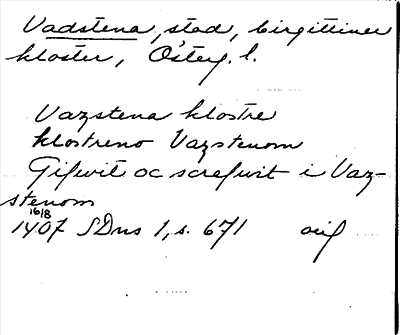 Vadstena, stad, birgittiner
kloster, Österg. l.
Vazstena klostre
klostreno Vazstenom
Gifwit oc screfwit i Vaz-
stenom
16/8
1407 SDns 1, s. 671 orig